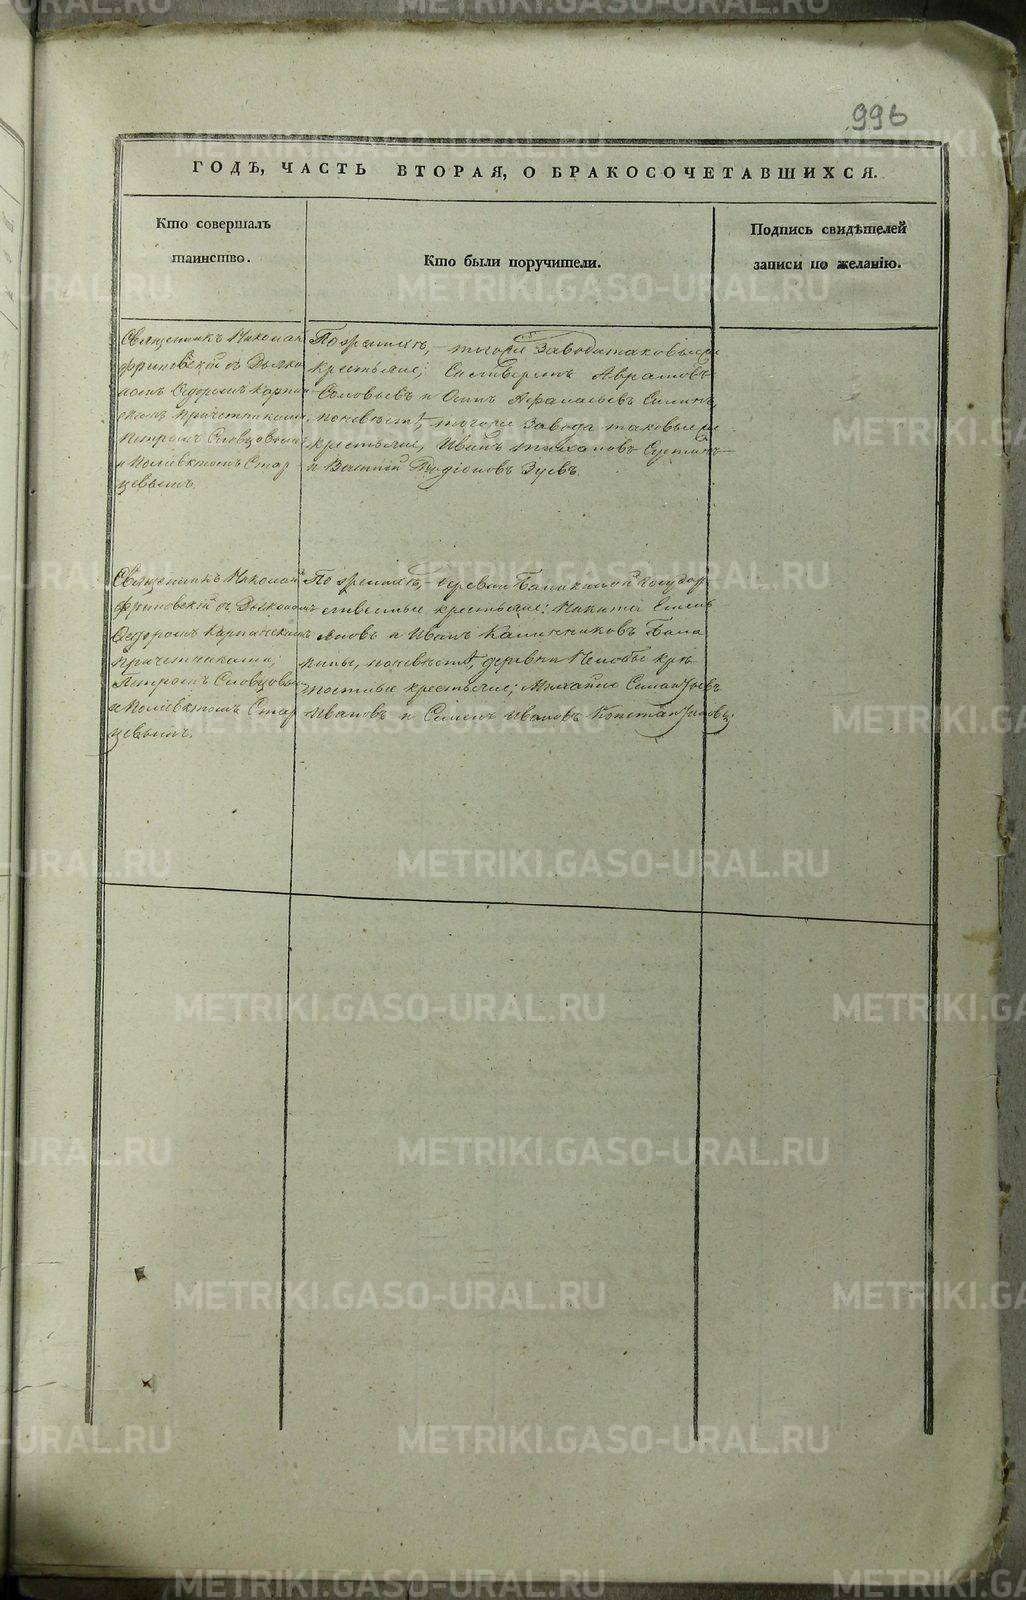 996
ГОДЪ, ЧАСТЬ ВТОРАЯ, О БРАКОСОЧЕТАВШИХСЯ.
Кто совершалъ
таинство.
Кто были поручители.
Подпись свидѣтелей
записи по желанію.
Священникъ Николай
съ Дьяко
номъ Ѳедоромъ Карпин
скимъ причетниками
Петромъ Словцовымъ
и Полиевктомъ Стар
цевымъ.
По женихѣ, — тогоже Завода таковыеже
крестьяне; Селиверстъ Аврамовъ
Соловьевъ и Осипъ
по невѣстѣ, тогоже Завода таковыеже
крестьяне, Иванъ
и Василій Родіоновъ Зуевъ
Священникъ Николай
съ Дьякономъ
Ѳедоромъ Карпинскимъ
причетниками;
Петромъ Словцовым
и Полиевктомъ Стар
цевымъ.
По женихѣ, — деревни государ
ственные крестьяне: Никита Емель
яновъ и Иванъ Калинниковъ
по невѣстѣ, деревни крѣ
постные крестьяне; Михайло
Ивановъ и Семенъ Ивановъ Константиновы.
METRIKI.GASO-URAL.RU